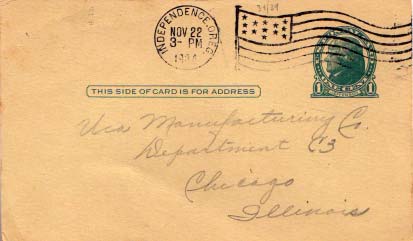 INDEPENDENCE, OREG.
NOV 22
3- PM
THIS SIDE OF CARD IS FOR ADDRESS
1 1
Uca Manufacturing Co.
Department C3
Chicago
Illinois